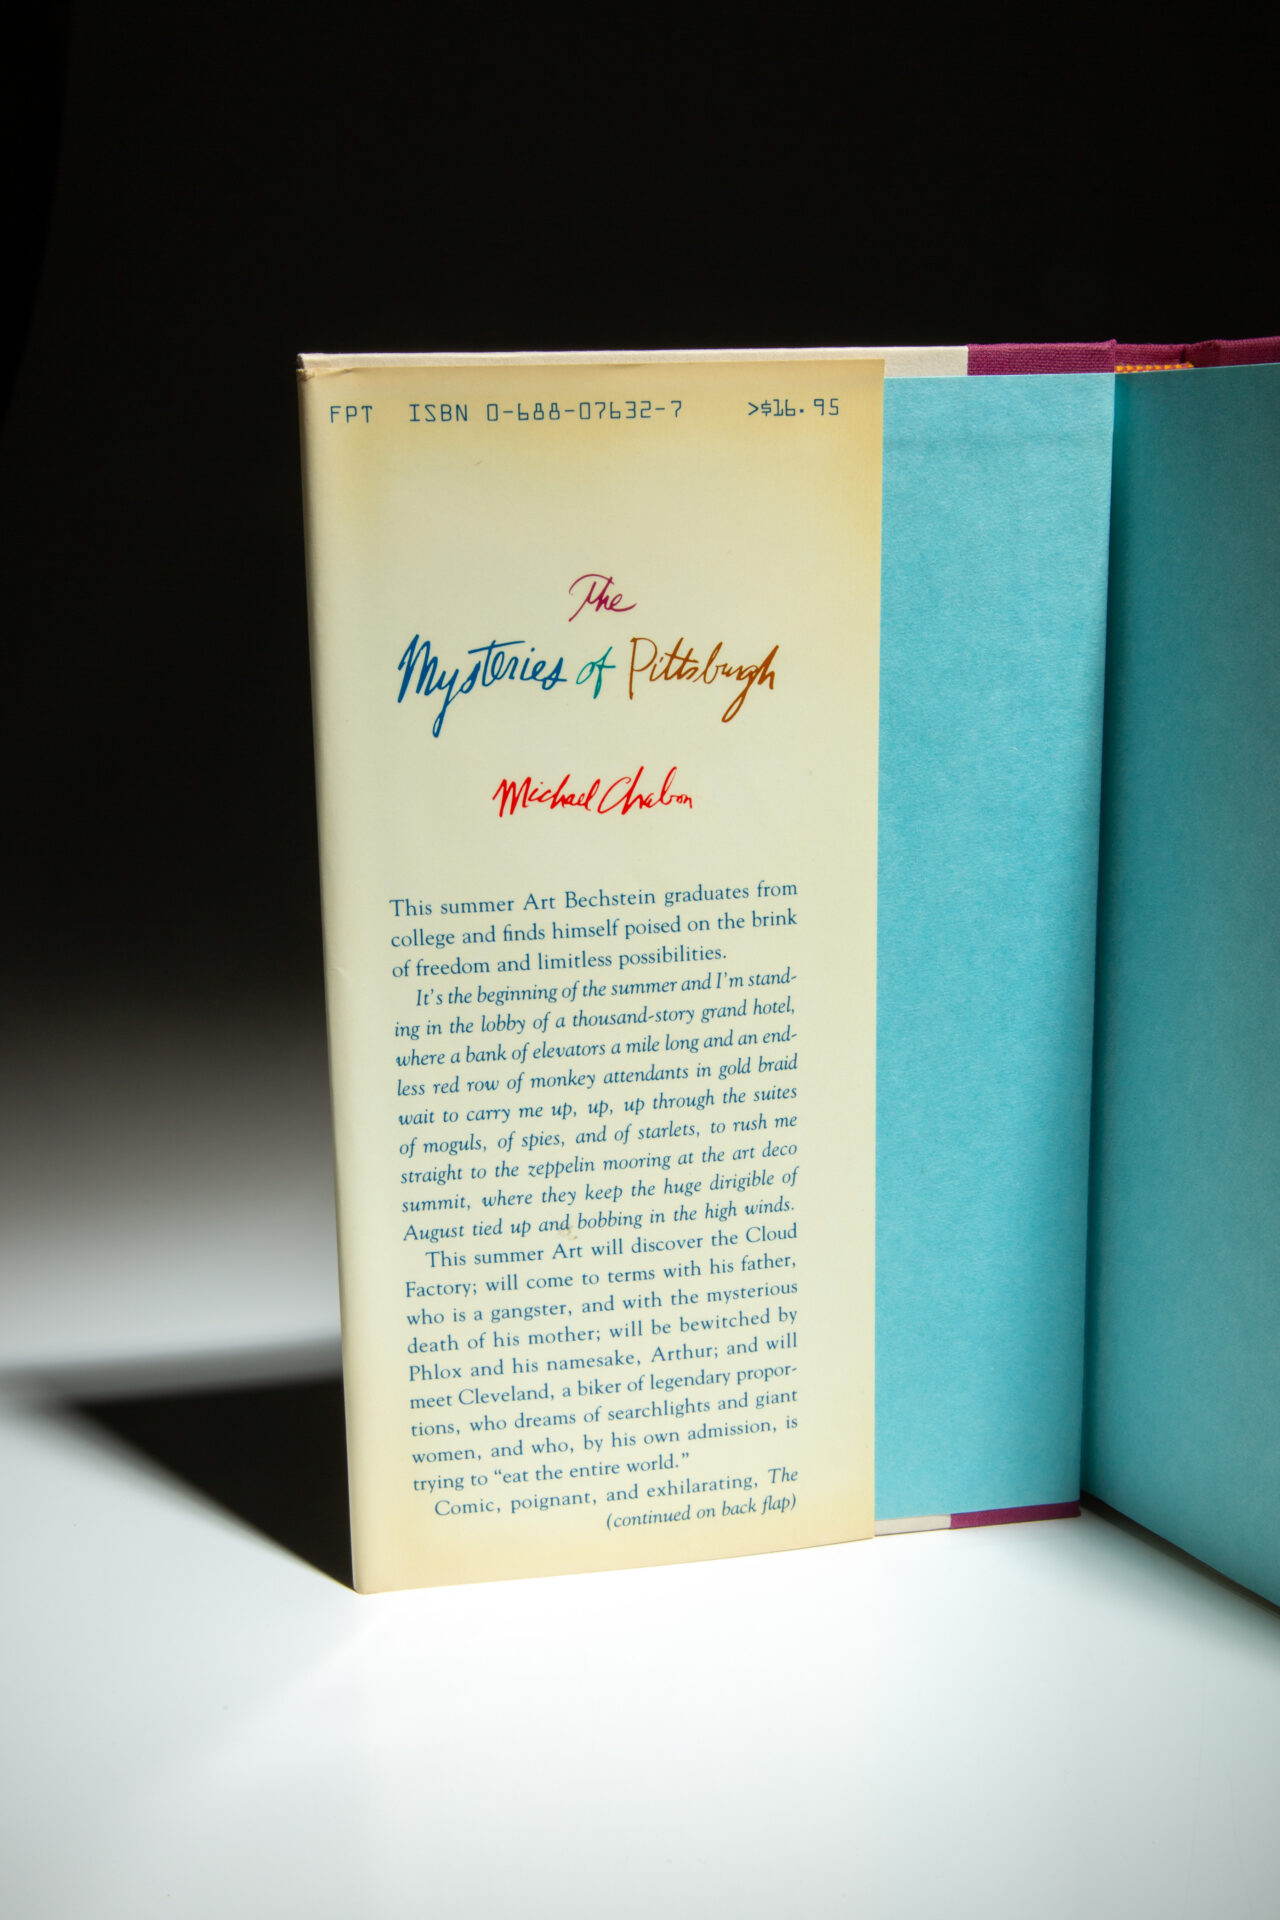 FPT ISBN 0-688-07632-7 >$16.95
The
Mysteries of Pittsburgh
Michael Chabon
This summer Art Bechstein graduates from
college and finds himself poised on the brink
of freedom and limitless possibilities.
It's the beginning of the summer and I'm stand-
ing in the lobby of a thousand-story grand hotel,
where a bank of elevators a mile long and an end-
less red row of monkey attendants in gold braid
wait to carry me up, up, up through the suites
of moguls, of spies, and of starlets, to rush me
straight to the zeppelin mooring at the art deco
summit, where they keep the huge dirigible of
August tied up and bobbing in the high winds.
This summer Art will discover the Cloud
Factory; will come to terms with his father,
who is a gangster, and with the mysterious
death of his mother; will be bewitched by
Phlox and his namesake, Arthur; and will
meet Cleveland, a biker of legendary propor-
tions, who dreams of searchlights and giant
women, and who, by his own admission, is
trying to "eat the entire world."
Comic, poignant, and exhilarating, The
(continued on back flap)